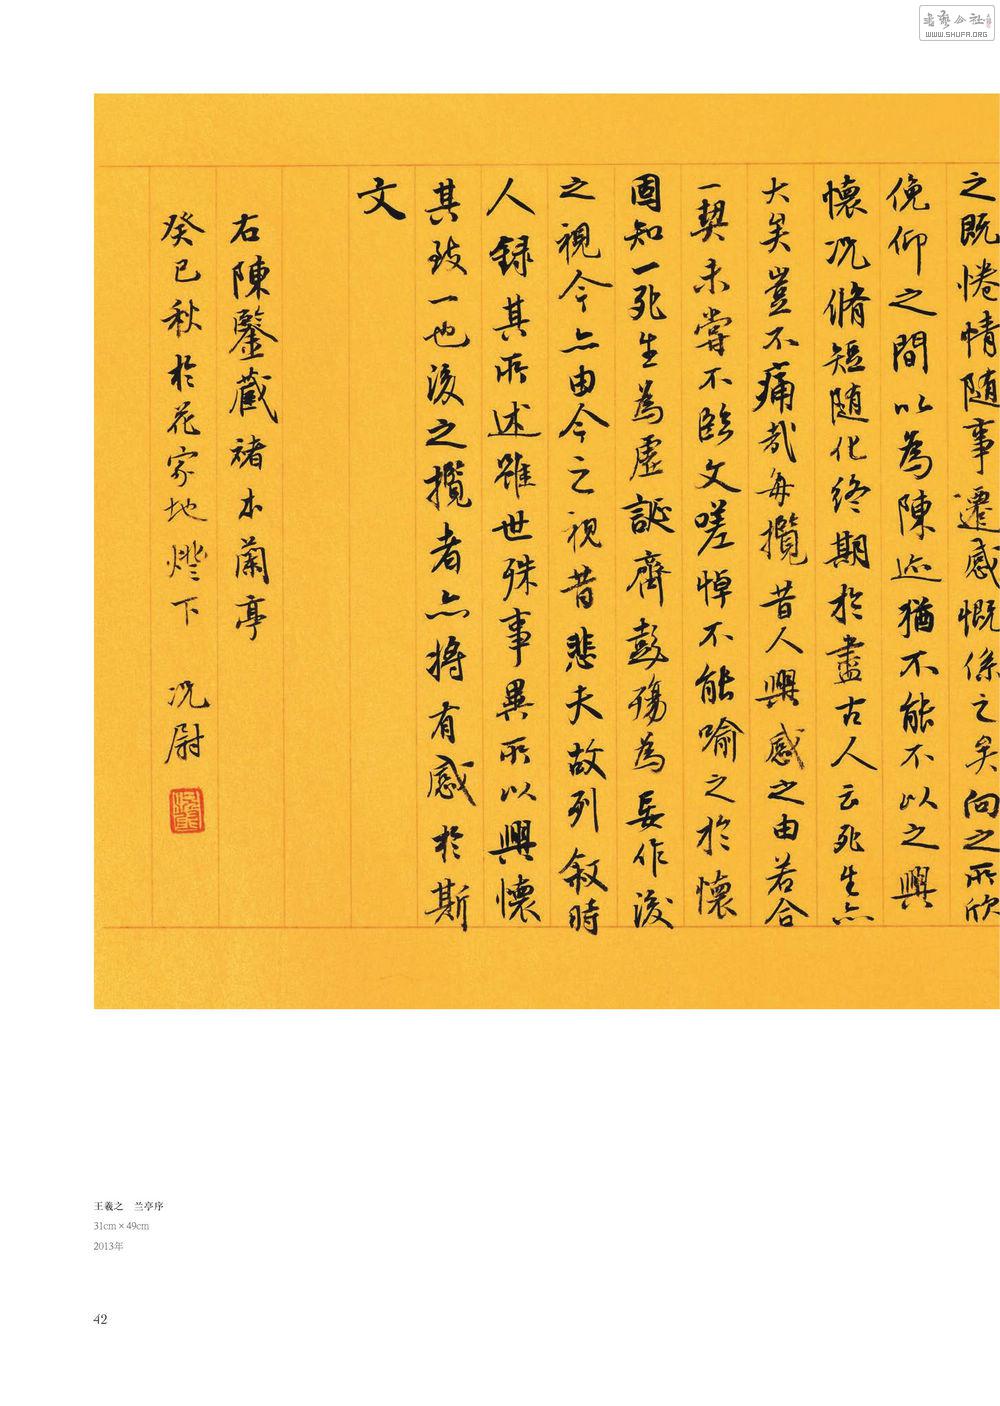 之既惓情随事遷感慨係之矣向之所欣
俛仰之間以為陳迹猶不能不以之興
懷况脩短随化終期於盡古人云死生亦
大矣豈不痛哉每攬昔人興感之由若合
一契未嘗不臨文嗟悼不能喻之於懷
固知一死生為虛誕齊彭殤為妄作後
之視今亦由今之視昔悲夫故列敘時
人錄其所述雖世殊事異所以興懷
其致一也後之攬者亦將有感於斯
文
右陳鑒藏褚本蘭亭
癸巳秋於花家地燈下 况尉
王羲之 兰亭序
31cm × 49cm
2013年
42
WWW.SHUFA.ORG